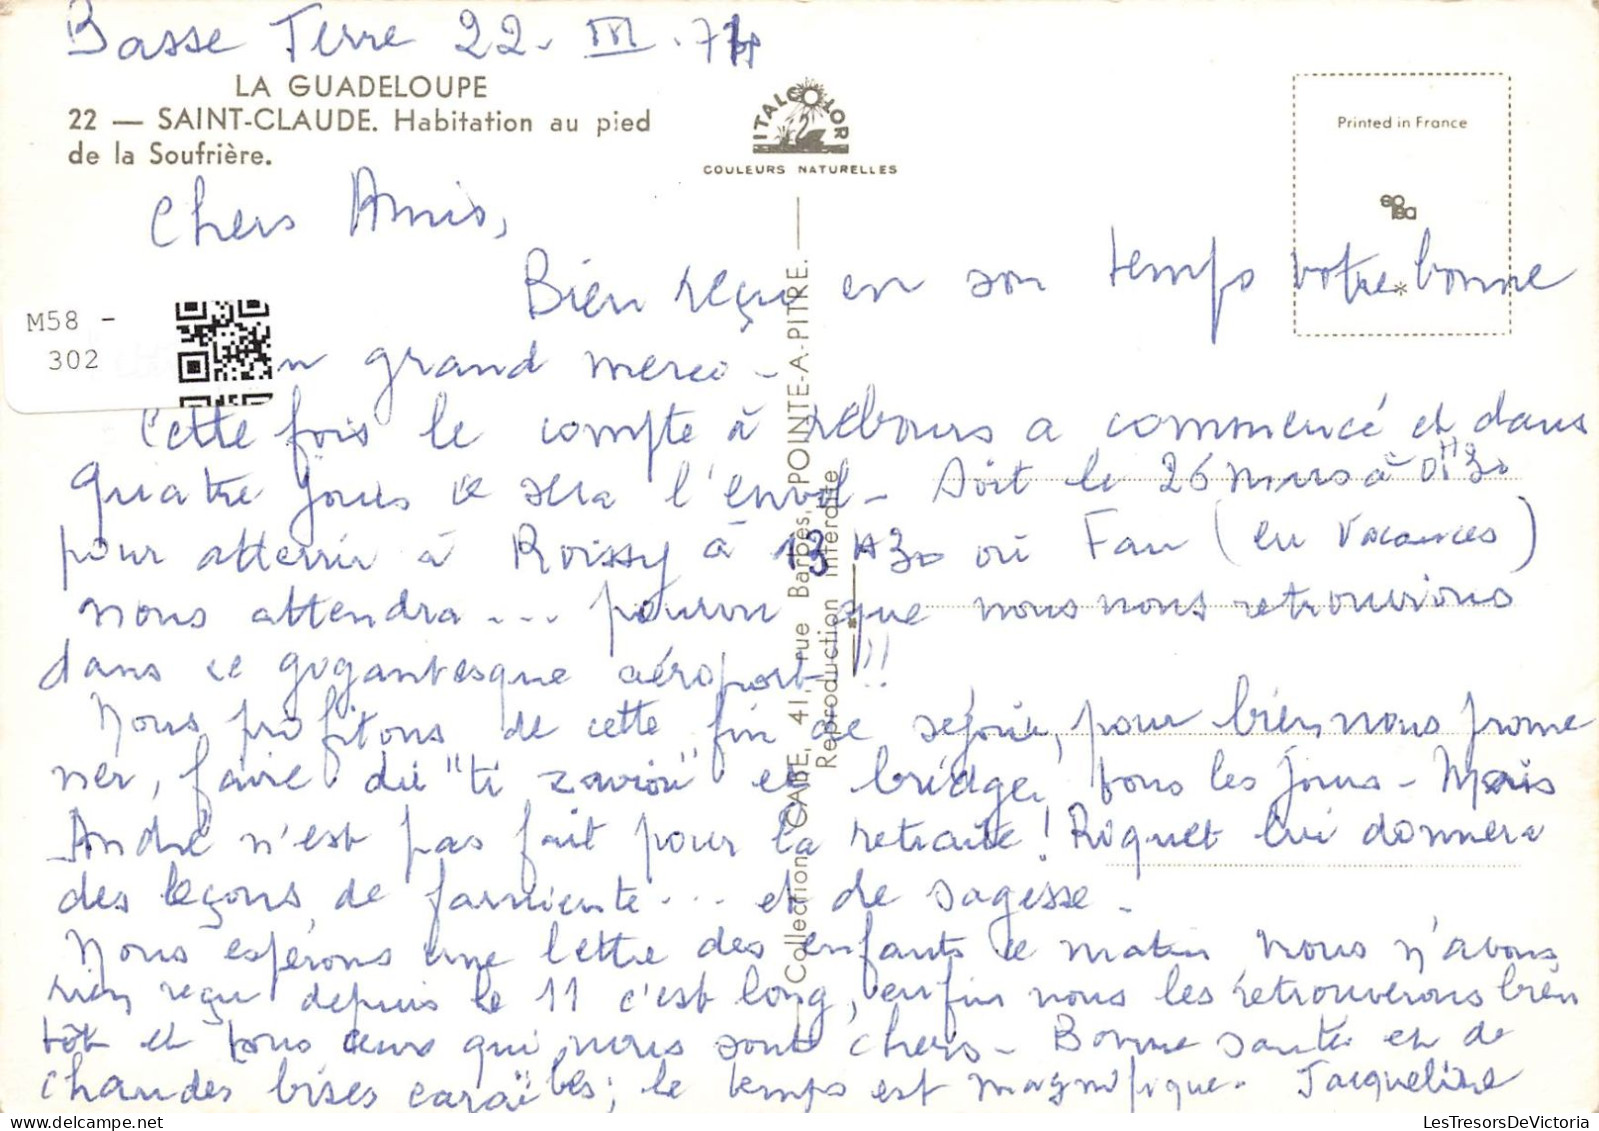 Basse Terre 22. III. 74
LA GUADELOUPE
22 — SAINT-CLAUDE. Habitation au pied
de la Soufrière.
ITALCOLOR
COULEURS NATURELLES
Printed in France
Chers Amis,
Bien reçu en son temps votre bonne
M58 -
302
n grand merci -
Cette fois le compte à rebours a commencé et dans
quatre jours ce sera l'envol - Soit le 26 mars à 0H30
pour atterrir à Roissy à 13H30 où Fan (en vacances)
nous attendra... pourvu que nous nous retrouvions
dans ce gigantesque aéroport !!
Nous profitons de cette fin de séjour, pour bien nous prome
ner, faire du "ti zavion" et bridge, tous les jours - Mais
André n'est pas fait pour la retraite ! Riquet lui donnera
des leçons de farniente ... et de sagesse -
Nous espérons une lettre des enfants ce matin nous n'avons
rien reçu depuis le 11 c'est long, enfin nous les retrouverons bien
tôt et tous ceux qui nous sont chers - Bonne santé et de
chaudes bises caraïbes; le temps est magnifique. Jacqueline
Collection GABE, 41, rue Barbès, POINTE-A-PITRE.
Reproduction interdite
LesTresorsDeVictoria.com